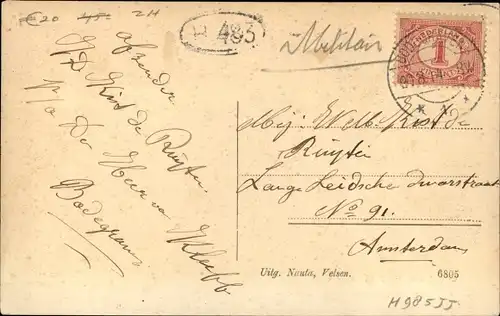 €20 45.- 2H
485
Militair
NEDERLAND
1
CENT
afzender
Kist de Ruyter
p/a De Heer v
Bodegraven
Mej. Kist de
Ruyter
Lange Leidsche Dwarsstraat
No 91.
Amsterdam
Uitg. Nauta, Velsen. 6805
H985JJ